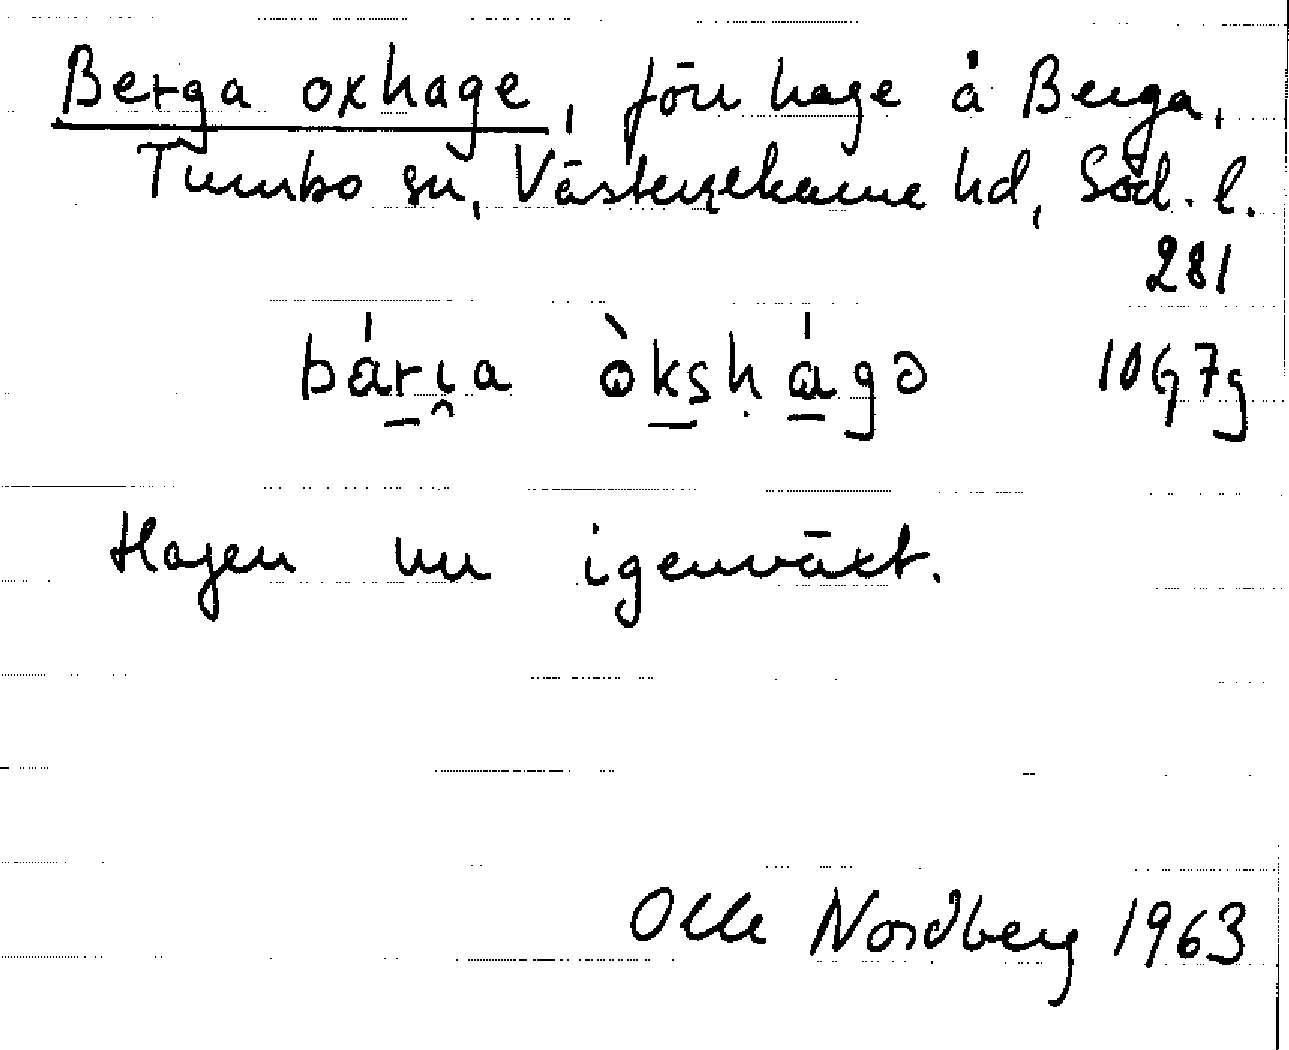 Berga oxhage, förr hage å Berga,
Tumbo sn, Västerrekarne hd, Söd. l.
281
bári̯a òksḥágə 10G7g
Hagen nu igenväxt.
Olle Nordberg 1963